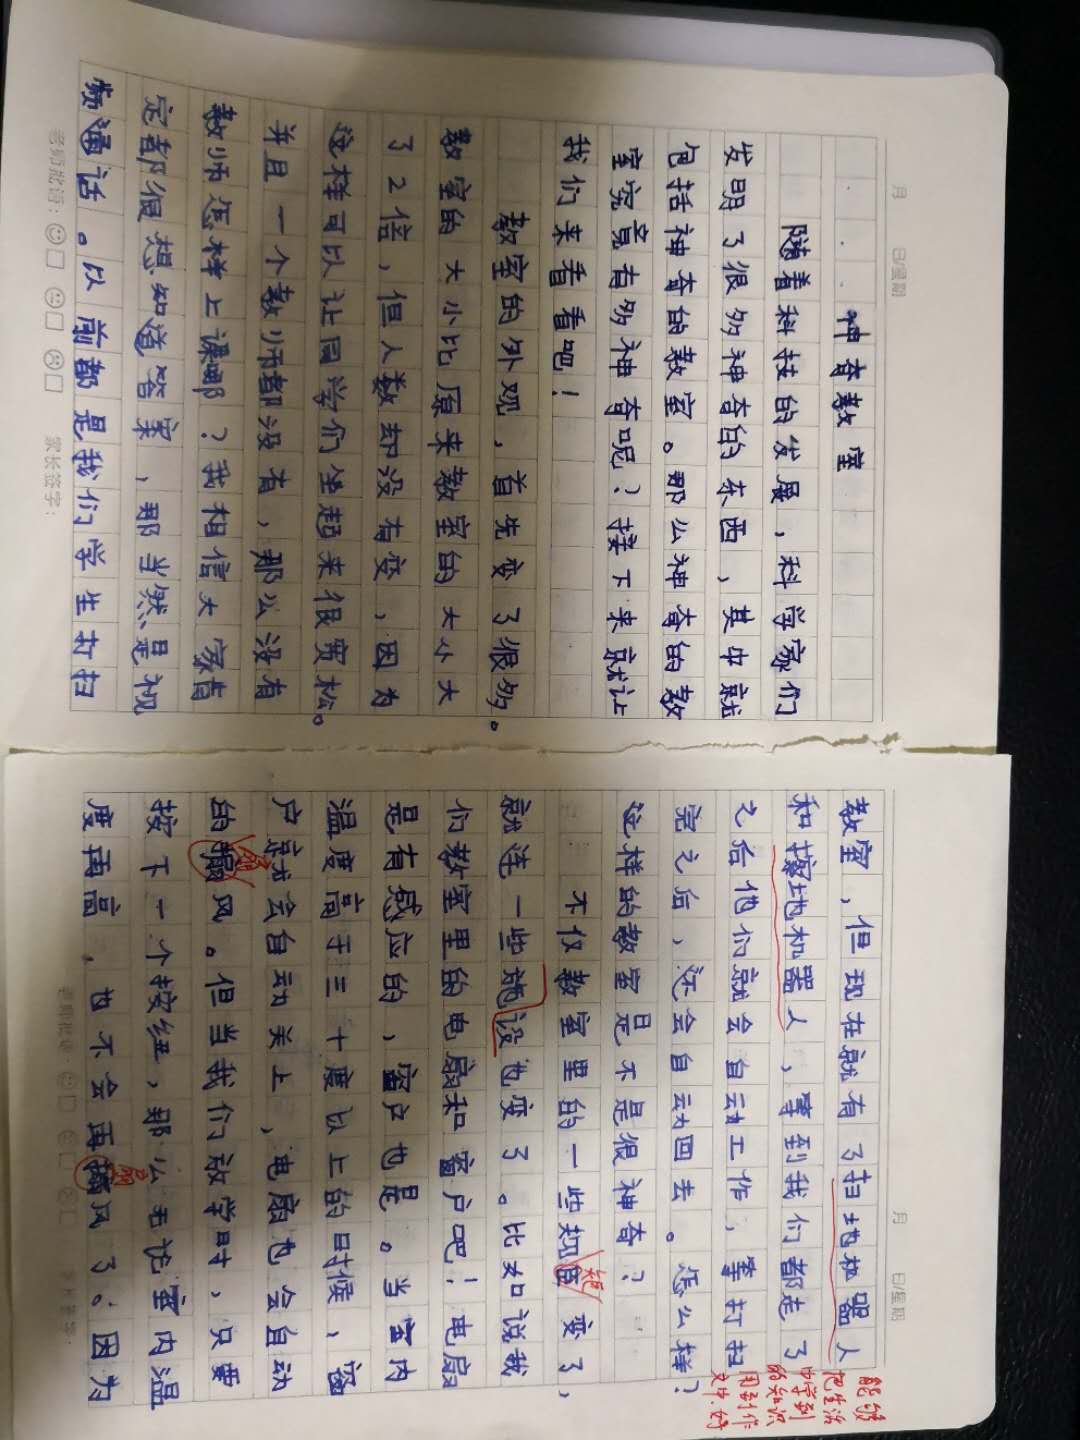 月 日/星期
神奇教室
随着科技的发展，科学家们
发明了很多神奇的东西，其中就
包括神奇的教室。那么神奇的教
室究竟有多神奇呢？接下来就让
我们来看看吧！
教室的外观，首先变了很多。
教室的大小比原来教室的大小大
了2倍，但人数却没有变，因为
这样可以让同学们坐起来很宽松。
并且一个教师都没有，那么没有
教师怎样上课哪？我相信大家肯
定都很想知道答案，那当然是视
频通话。以前都是我们学生打扫
老师批语： 家长签字：
月 日/星期
教室，但现在就有了扫地机器人
和擦地机器人，等到我们都走了
之后他们就会自动工作，等打扫
完之后，还会自动回去。怎么样？
这样的教室是不是很神奇？
不仅教室里的一些规变了，
矩
就连一些施设也变了。比如说我
们教室里的电扇和窗户吧！电扇
是有感应的，窗户也是。当室内
温度高于三十度以上的时候，窗
户就会自动关上，电扇也会自动
的扇风。但当我们放学时，只要
扇
按下一个按纽，那么无论室内温
度再高，也不会再风了。因为
扇
能够
把生活
中学到
的知识
用到作
文中，好